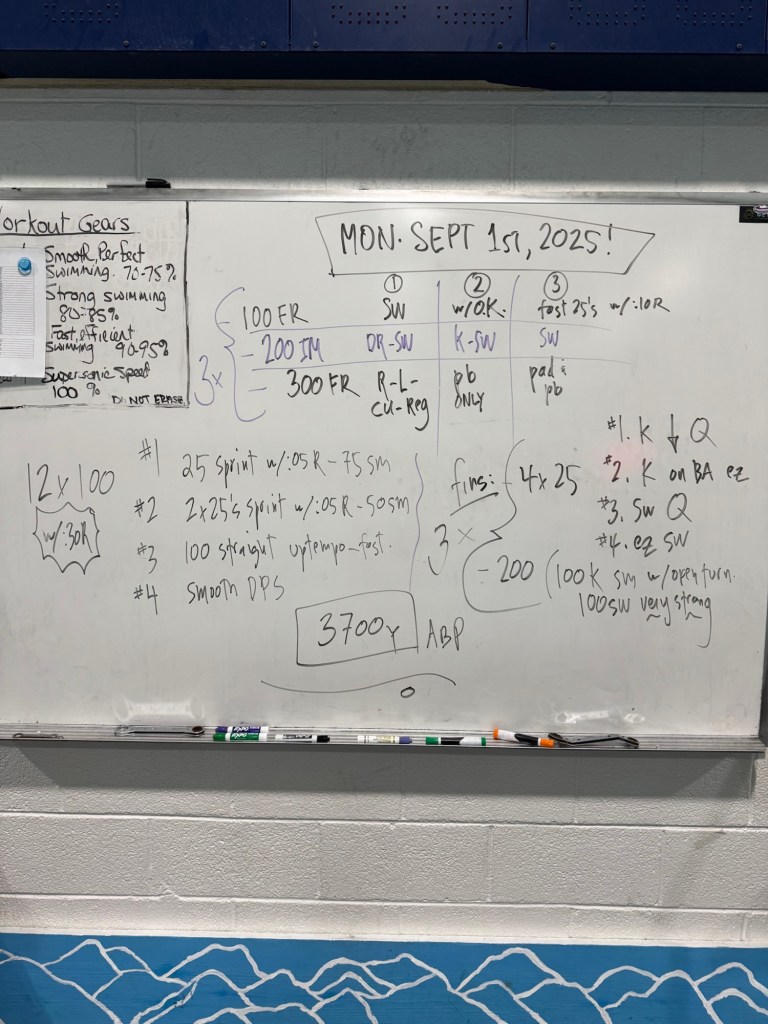 orkout Gears
Smooth, Perfect
Swimming. 70-75%
Strong swimming
80-85%
Fast, efficient
swimming 90-95%
Supersonic Speed
100 %
DO NOT ERASE.
MON. SEPT 1st, 2025!
① ② ③
3x
100 FR SW w/O.K. fast 25's w/:10R
- 200 IM DR-SW K-SW SW
- 300 FR R-L-CU-Reg pb ONLY pad & pb
12 x 100
w/:30R
#1 25 sprint w/:05R - 75 sm
#2 2x25's sprint w/:05R - 50sm
#3 100 straight uptempo-fast.
#4 smooth DPS
fins:
3x
- 4x25
#1. K ↓ Q
#2. K on BA ez
#3. SW Q
#4. ez SW
- 200 (100K sm w/open turn.
100SW very strong
3700y ABP